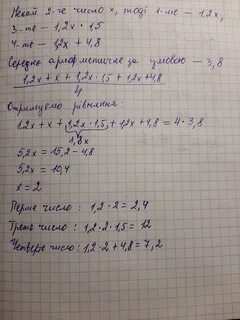 Нехай 2-ге число х, тоді 1-ше — 1,2х,
3-тє — 1,2х · 1,5
4-те — 1,2х + 4,8
Середнє арифметичне за умовою — 3,8
1,2х + х + 1,2х · 1,5 + 1,2х + 4,8
4
Отримуємо рівняння:
1,2х + х + 1,2х · 1,5 + 1,2х + 4,8 = 4 · 3,8
1,8х
5,2х = 15,2 - 4,8
5,2х = 10,4
х = 2
Перше число: 1,2 · 2 = 2,4
Третє число: 1,2 · 2 · 1,5 = 12
Четверте число: 1,2 · 2 + 4,8 = 7,2